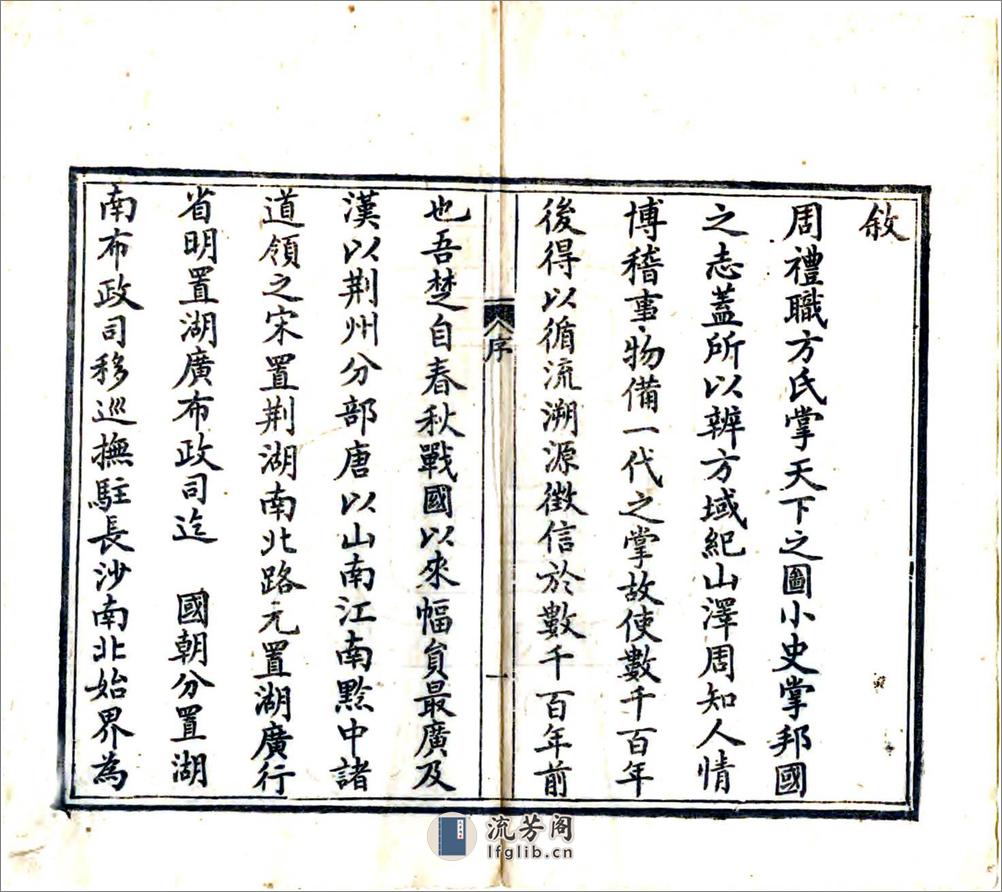 敘
周禮職方氏掌天下之圖小史掌邦國
之志蓋所以辨方域紀山澤周知人情
博稽事物備一代之掌故使數千百年
後得以循流溯源徵信於數千百年前
序
一
也吾楚自春秋戰國以來幅員最廣及
漢以荆州分部唐以山南江南黔中諸
道領之宋置荆湖南北路元置湖廣行
省明置湖廣布政司迄　國朝分置湖
南布政司移巡撫駐長沙南北始界為
流芳阁
lfglib.cn